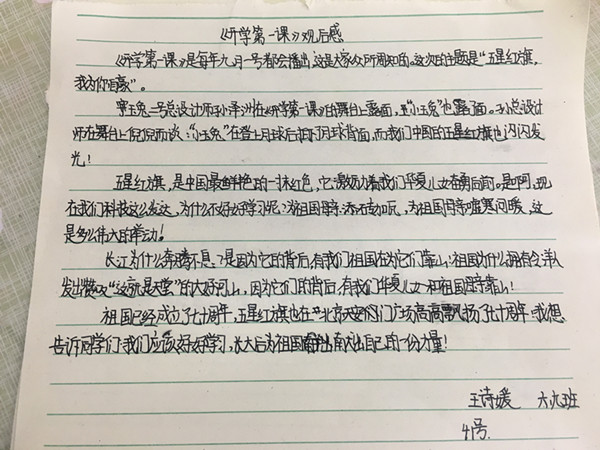 《开学第一课》观后感
《开学第一课》是每年九月一号都会播出,这是大家众所周知的。这次的主题是“五星红旗,
我为你自豪”。
宇玉兔二号总设计师孙泽洲在《开学第一课》的舞台上露面,且“小玉兔”也露了面。孙总设计
师在舞台上侃侃而谈:“小玉兔”在登上月球后拍下了月球背面,而我们中国的五星红旗也闪闪发
光!
五星红旗,是中国最鲜艳的一抹红色,它激励着我们华夏儿女奋勇向前。是啊,现
在我们科技这么发达,为什么不好好学习呢?为祖国母亲添砖加瓦,为祖国母亲嘘寒问暖,这
是多么伟大的举动!
长江为什么奔腾不息?是因为它的背后,有我们祖国在为它们靠山;祖国为什么拥有令洋人
发出赞叹“这就是天堂”的大好河山,因为它们的背后,有我们华夏儿女和祖国母亲靠山!
祖国已经成立了七十周年,五星红旗也在北京天安门广场高高飘扬了七十周年。我想
告诉同学们:我们应该好好学习,长大后为祖国献出自己的一份力量!
王诗媛 六九班
41号